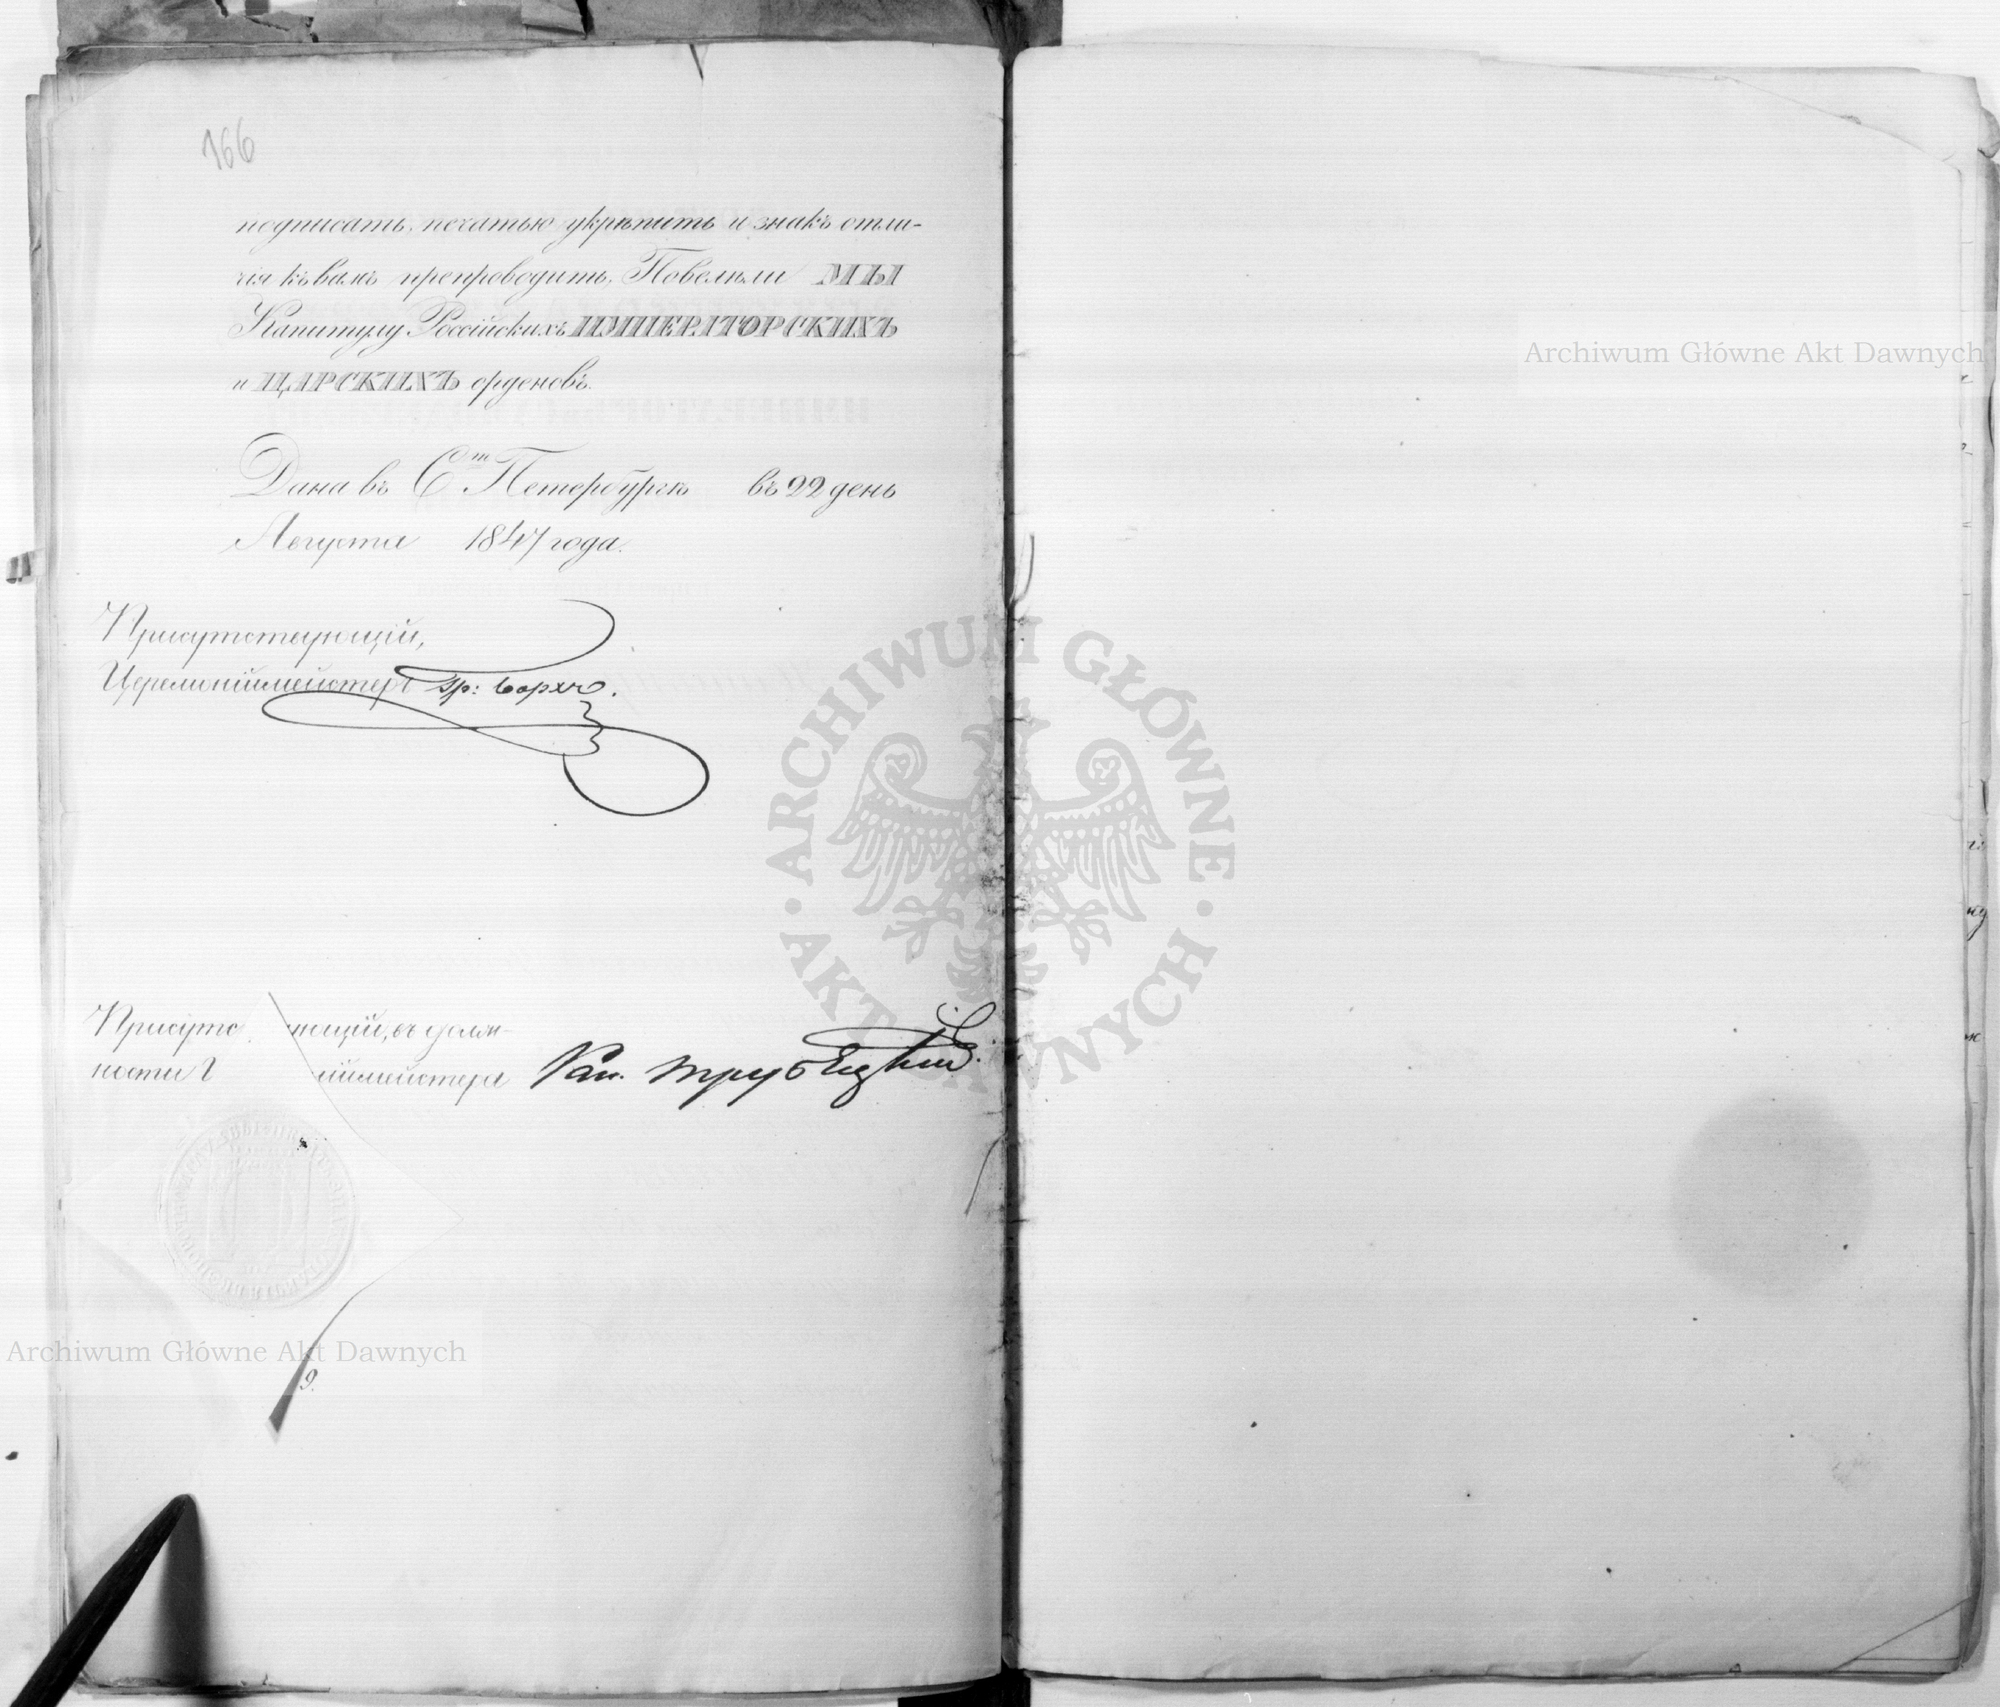 166
подписать, печатью укрѣпить и знакъ отли-
чія къ вамъ препроводить, Повелѣли МЫ
Капитулу Россійскихъ ИМПЕРАТОРСКИХЪ
и ЦАРСКИХЪ орденовъ.
Дана въ Ст Петербургѣ въ 22 день
Августа 1847 года.
Присутствующій,
Церемоніймейстеръ Гр: Борхъ.
Присутс ующій, въ долж-
ности Г іймейстера Кн. Трубецкий
9.
Archiwum Główne Akt Dawnych
Archiwum Główne Akt Dawnych
ARCHIWUM GŁÓWNE
AKT DAWNYCH